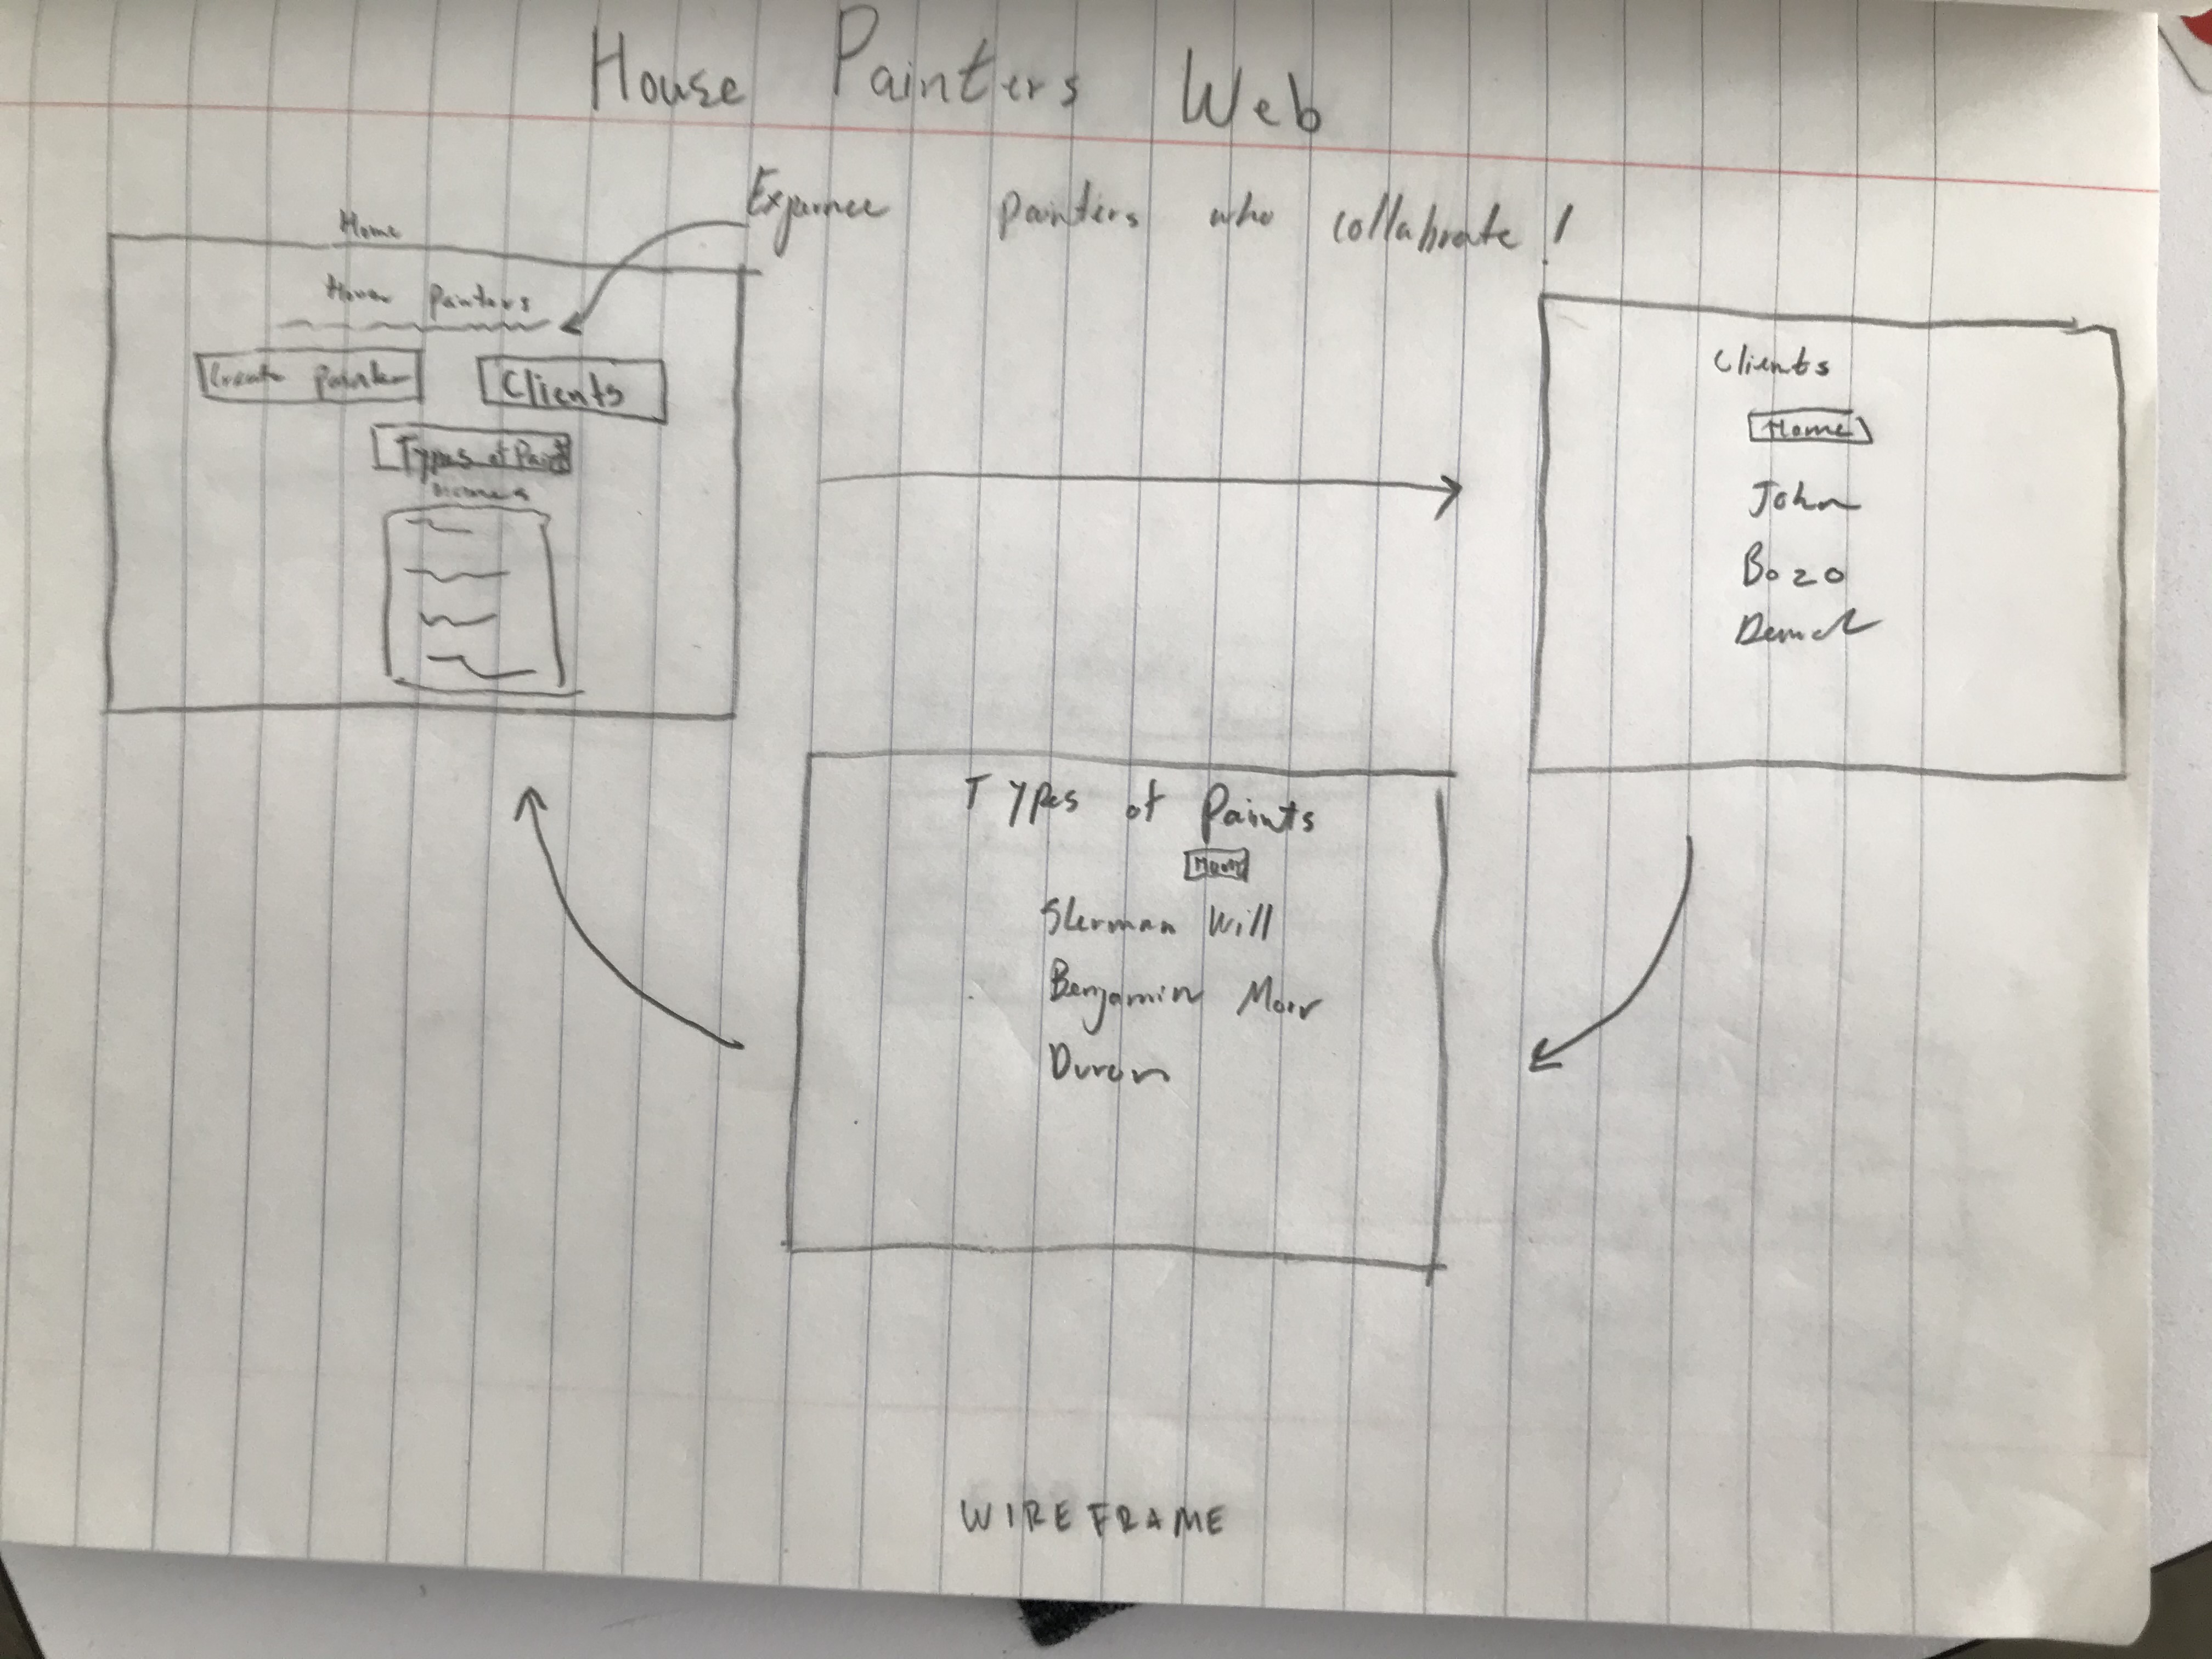 House Painters Web
Experience painters who collabrate!
Home
House Painters
Create Painter
Clients
Types of Paint
Names
Clients
Home
John
Bozo
Types of Paints
Home
Sherman Will
Benjamin Moor
WIREFRAME